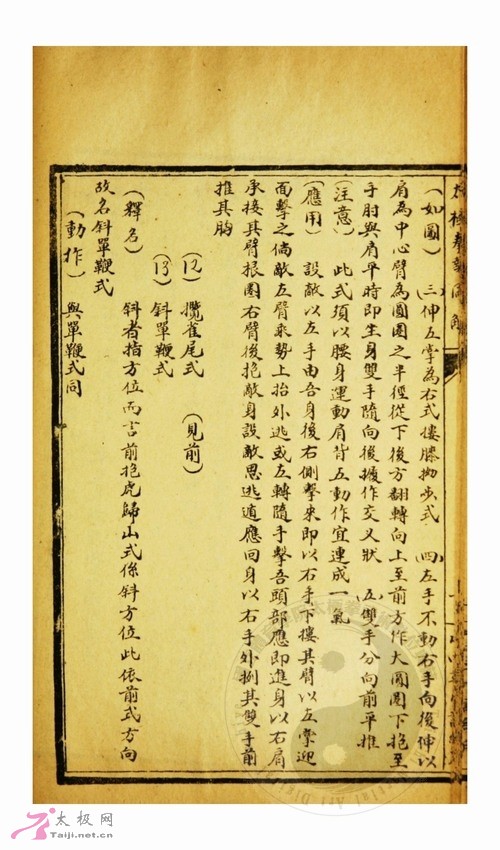 （如圖）　三伸左掌為右式摟膝拗步式　四左手不動右手向後伸以
肩為中心臂為圓圈之半徑從下後方翻轉向上至前方作大圓圈下抱至
手肘與肩平時即坐身雙手隨向後擴作交叉狀　五雙手分向前平推
（注意）　此式須以腰身運動肩背五動作宜連成一氣
（應用）　設敵以左手由吾身後右側擊來即以右手下摟其臂以左掌迎
面擊之倘敵左臂來勢上抬外逃或左轉隨手擊吾頭部應即進身以右肩
承接其臂根圈右臂後抱敵身設敵思逃遁應回身以右手外捌其雙手前
推其胸
（12）攬雀尾式　（見前）
（13）斜單鞭式
（釋名）　斜者指方位而言前抱虎歸山式係斜方位此依前式方向
故名斜單鞭式
（動作）　與單鞭式同
太极网
Taiji.net.cn